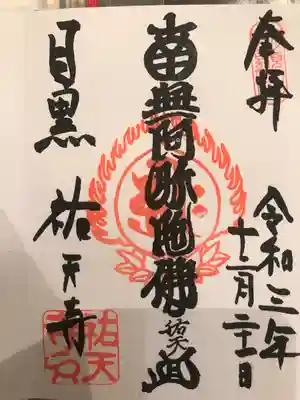 奉拝
令和三年
十二月二十一日
南無阿弥陀佛
祐天
目黒 祐天寺
祐天